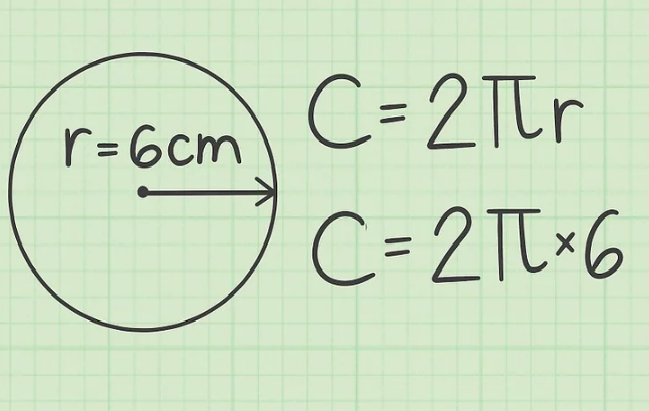 r=6cm
C=2πr
C=2π×6